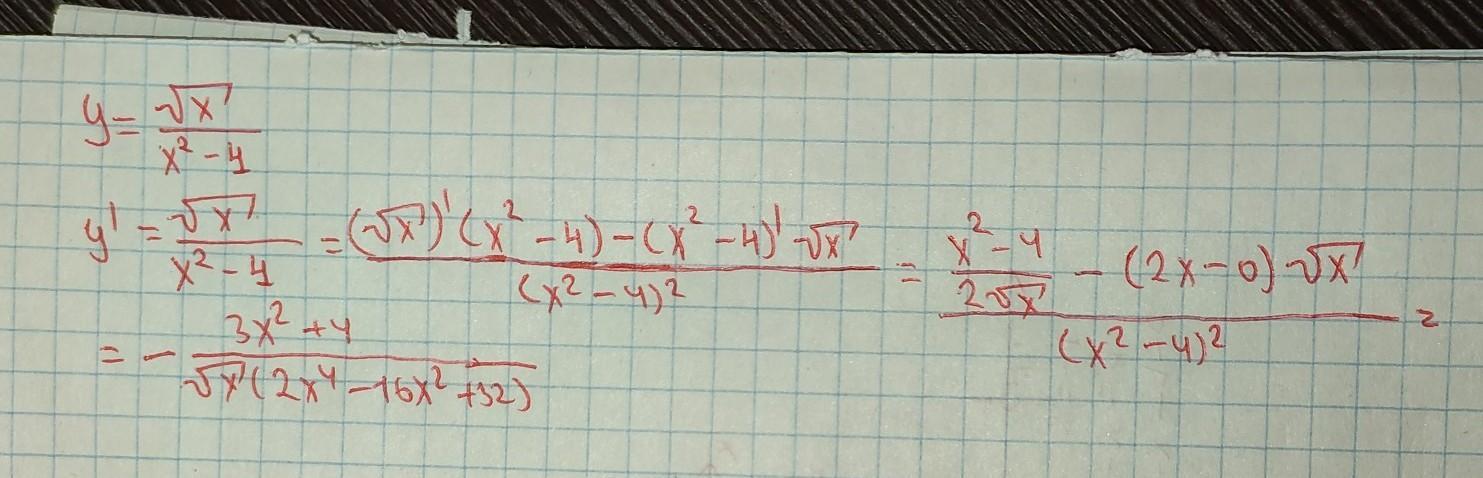 y = √x / (x² - 4)
y' = √x / (x² - 4) = ((√x)' (x² - 4) - (x² - 4)' √x) / (x² - 4)² = ((x² - 4) / (2√x) - (2x - 0) √x) / (x² - 4)² =
= - (3x² + 4) / (√x (2x⁴ - 16x² + 32))